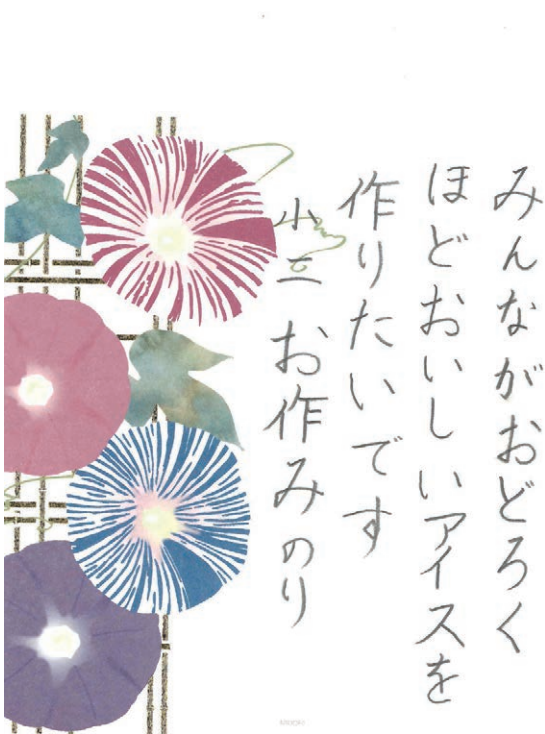 みんながおどろく
ほどおいしいアイスを
作りたいです
小三 お作みのり